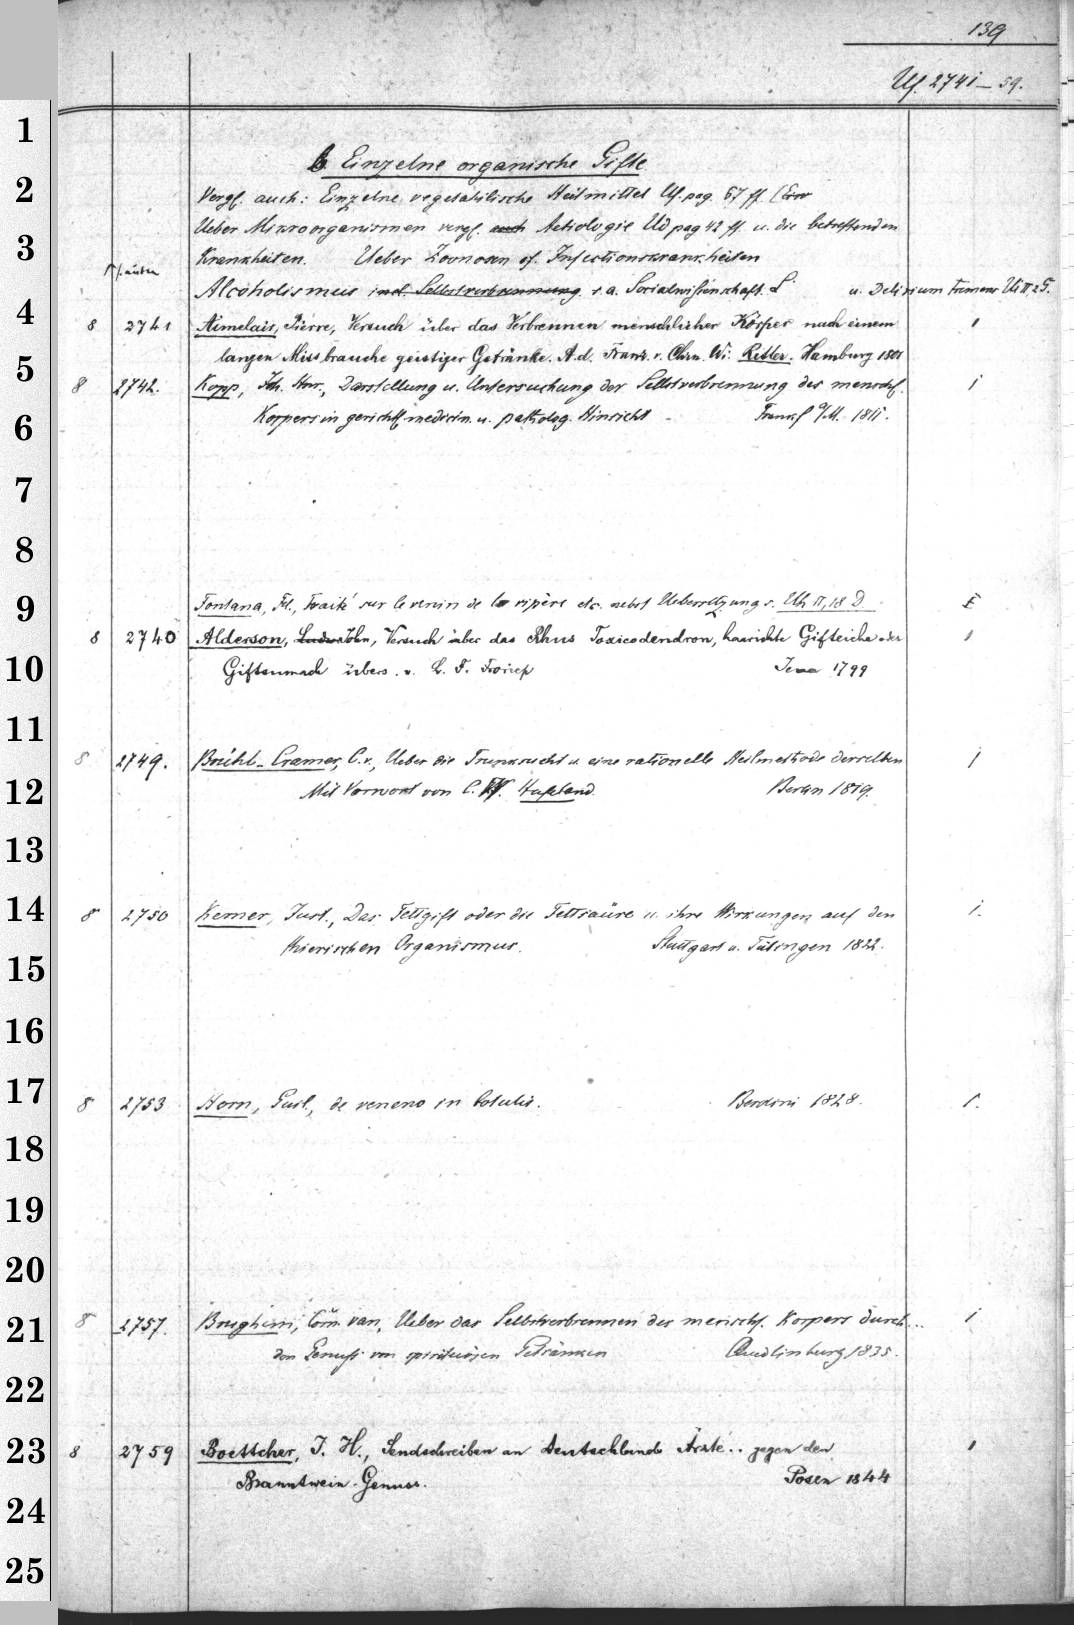 139
Uf. 2741 – 59.
b Einzelne organische Gifte
Vergl. auch: Einzelne vegetabilische Heilmittel Uf. pag. 67 ff.
Ueber Mikroorganismen vergl. auch Aetiologie Ud pag 42 ff. u. die betreffenden
Krankheiten. Ueber Zoonosen cf. Infectionskrankheiten
Alcoholismus incl. Selbstverbrennung s. a. Socialwissenschaft. L u. Delirium tremens
8 2741 Aimelair, Pierre, Versuch über das Verbrennen menschlicher Körper nach einem 1
langen Missbrauche geistiger Getränke. A. d. Franz. v. Chrn. Wi. Ritter. Hamburg 1801
8 2742. Kopp, Joh. Hnr., Darstellung u. Untersuchung der Selbstverbrennung des menschl. 1
Körpers in gerichtl. medicin. u. patholog. Hinsicht Frankf a/M. 1811.
Fontana, Fel., Traité sur le venin de la vipère etc. nebst Uebersetzung s. Uh II, 18 D.
8 2740 Alderson, John, Versuch über das Rhus Toxicodendron, haarichte Gifteiche oder 1
Giftsumach übers. v. L. F. Froriep Jena 1799
8 2749. Brühl-Cramer, C. v., Ueber die Trunksucht u. eine rationelle Heilmethode derselben 1
Mit Vorwort von C. W. Hufeland. Berlin 1819.
8 2750 Kerner, Just., Das Fettgift oder die Fettsäure u. ihre Wirkungen auf den 1.
thierischen Organismus. Stuttgart u. Tübingen 1822.
8 2753 Horn, Guil., de veneno in botulis. Berolini 1828. 1.
8 2757. Brughem, Corn. van, Ueber das Selbstverbrennen des menschl. Körpers durch 1
den Genuss von spirituösen Getränken Quedlinburg 1835.
8 2759 Boettcher, J. H., Sendschreiben an Deutschlands Ärzte .. gegen den 1
Branntwein-Genuss. Posen 1844
1
2
3
4
5
6
7
8
9
10
11
12
13
14
15
16
17
18
19
20
21
22
23
24
25